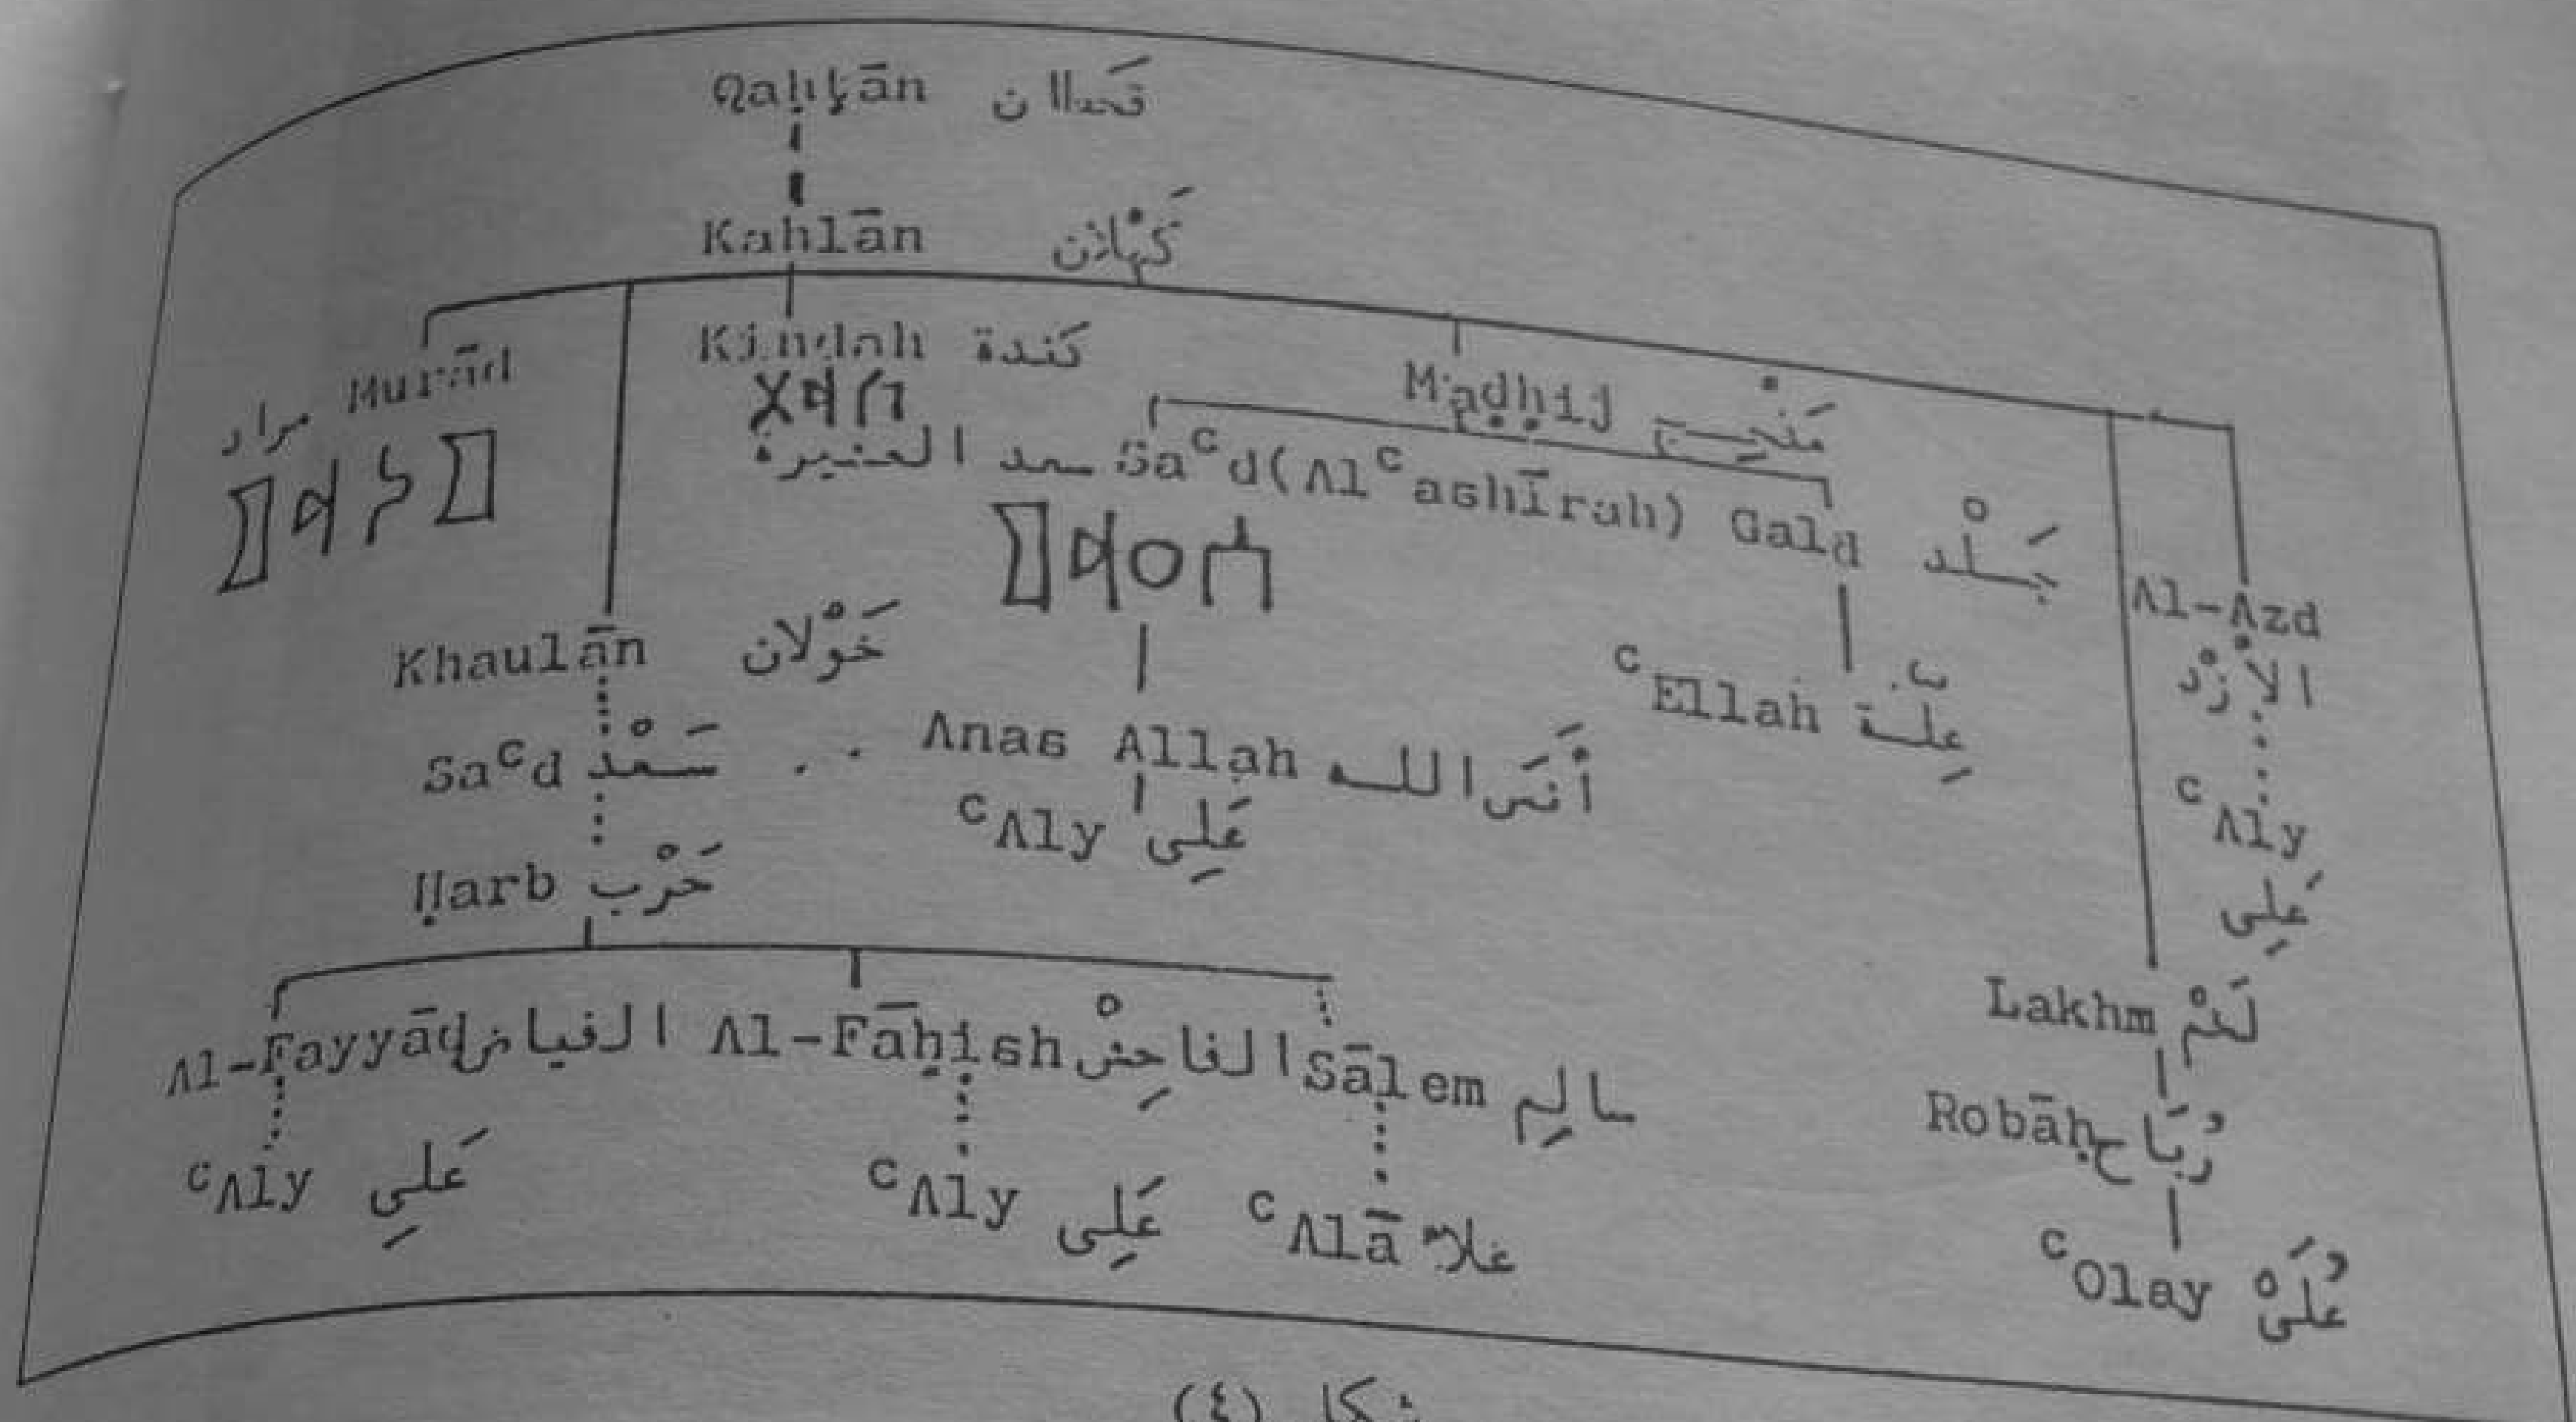 Qaḥṭān قَحطان
Kahlān كَهْلان
Murād مراد
Kindah كَندة
Madḥij مَذْحِـج
𐩣𐩧𐩵𐩣
𐩫𐩵𐩩
Saᶜd(Alᶜashīrah) سعد العشيرة
Gald جَـلْد
𐩪𐩲𐩵𐩣
Al-Azd
الأزْد
Khaulān خَوْلان
ᶜEllah عِلّـة
Saᶜd سَـعْد
Anas Allah أَنَس الله
ᶜAly عَلِى
ᶜAly
عَلِى
Ḥarb حَرْب
Lakhm لَخْم
Al-Fayyāḍ الفياض
Al-Fāḥish الفاحِش
Sālem سالِم
Robāḥ رُبَاح
ᶜAly عَلِى
ᶜAly عَلِى
ᶜAlā علاء
ᶜOlay عُلَىْ
شكل (٤)